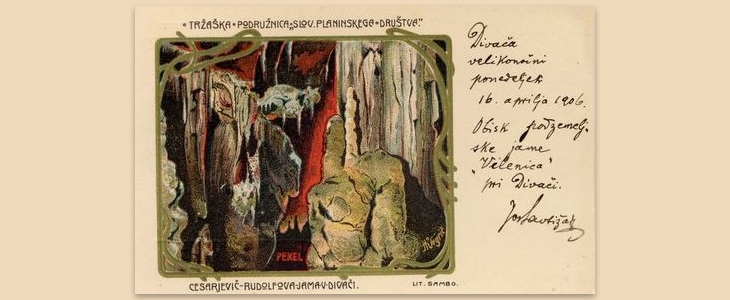 • TRŽAŠKA • PODRUŽNICA „SLOV. PLANINSKEGA • DRUŠTVA.”
PEKEL
CESARJEVIČ-RUDOLFOVA-JAMA V DIVAČI.
LIT. SAMBO.
Divača
velikončni
ponedeljek
16. aprilja 1906.
Obisk podzemelj-
ske jame
„Vilenica”
pri Divači.